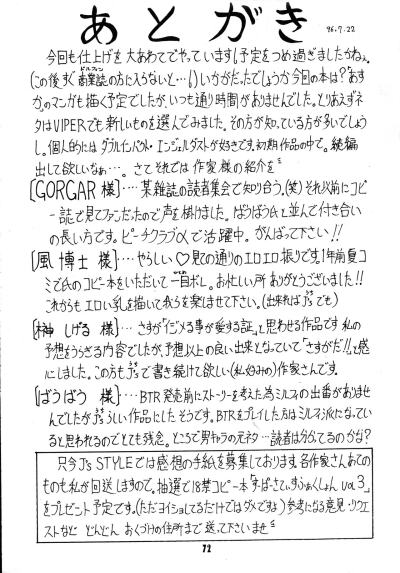 あとがき 96.7.22
今回も仕上げを大あわてでやっています！予定をつめ過ぎましたかねぇ。
(この後すぐ商業誌の方に入らないと…！)いかがだったでしょうか今回の本は？あす
かのマンガも描く予定でしたが、いつも通り時間がありませんでした。とりあえずネ
タはVIPERでも新しいものを選んでみました。その方が知っている方が多いでしょう
し。個人的には ダブルインパクト・エンジェルダストが好きです。初期作品の中で。続編
出して欲しいなぁ…。さてそれでは作家様の紹介を
[GORGAR 様]…某雑誌の読者集会で知り合う。(笑)それ以前にコピ
ー誌で見てファンだったので声を掛けました。ばうばう氏と並んで付き合い
の長い方です。ピーチクラブαで活躍中。がんばって下さい!!
[風 博士 様]…やらしい♡見ての通りのエロエロ振りです。1年前夏コ
ミで氏のコピー本をいただいて一目ボレ。お忙しい所ありがとうございました!!
これからもエロい乳を描いて我らを楽しませて下さい。(出来ればJ'sでも)
[榊 しげる 様]…さすが「イジメる事が愛する証。」と思わせる作品です 私の
予想をうらぎる内容でしたが、予想以上の良い出来となっていて「さすがだ!!」と感
にしました。この方もJ'sで書き続けて欲しい(私好みの)作家さんです。
[ばうばう 様]…BTR発売前にストーリーを考えた為ミルスの出番がありませ
んでしたがJ'sらしい作品にしたそうです。BTRをプレイした方はミルス派になってい
ると思われるのでとても残念。ところで男キャラの元ネタ…読者は分かってるのかな？
只今J's STYLEでは感想の手紙を募集しております。各作家さんあての
ものも私が回送しますので。抽選で18禁コピー本「すぱーさてぃすふぁくしょん vol 3」
をプレゼント予定です。(ただヨイショしてるだけではダメですよ)参考になる意見・リクエ
ストなど どんどん おくづけの住所まで 送って下さいませ
72